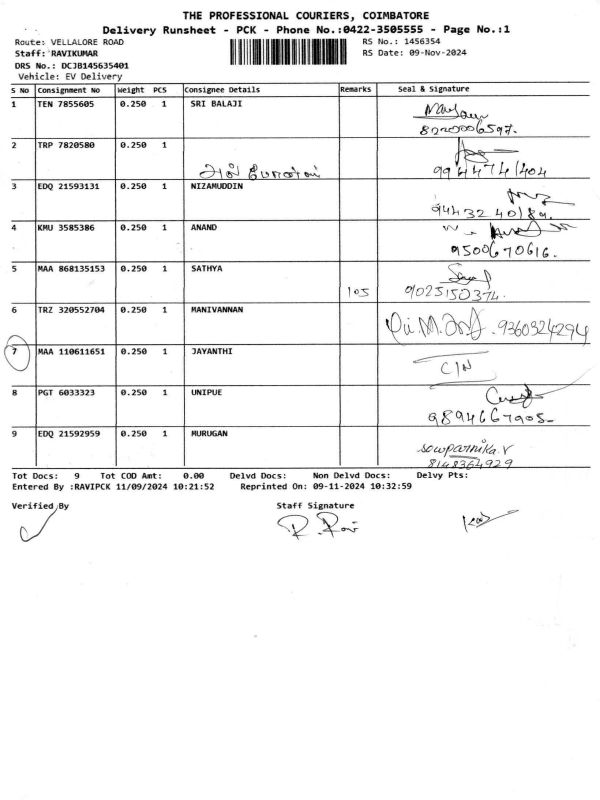 THE PROFESSIONAL COURIERS, COIMBATORE
Delivery Runsheet - PCK - Phone No.:0422-3505555 - Page No.:1
Route: VELLALORE ROAD RS No.: 1456354
Staff: RAVIKUMAR RS Date: 09-Nov-2024
DRS No.: DCJB145635401
Vehicle: EV Delivery
S No Consignment No Weight PCS Consignee Details Remarks Seal & Signature
1 TEN 7855605 0.250 1 SRI BALAJI
8220006597.
2 TRP 7820580 0.250 1
9944741404
3 EDQ 21593131 0.250 1 NIZAMUDDIN
9443240189.
4 KMU 3585386 0.250 1 ANAND
9500670616.
5 MAA 868135153 0.250 1 SATHYA
105 9025150374.
6 TRZ 320552704 0.250 1 MANIVANNAN
9360324294
7 MAA 110611651 0.250 1 JAYANTHI
C/N
8 PGT 6033323 0.250 1 UNIPUE
9894667905-
9 EDQ 21592959 0.250 1 MURUGAN
sowparnika.V
8148364929
Tot Docs: 9 Tot COD Amt: 0.00 Delvd Docs: Non Delvd Docs: Delvy Pts:
Entered By :RAVIPCK 11/09/2024 10:21:52 Reprinted On: 09-11-2024 10:32:59
Verified By Staff Signature
R. Ravi